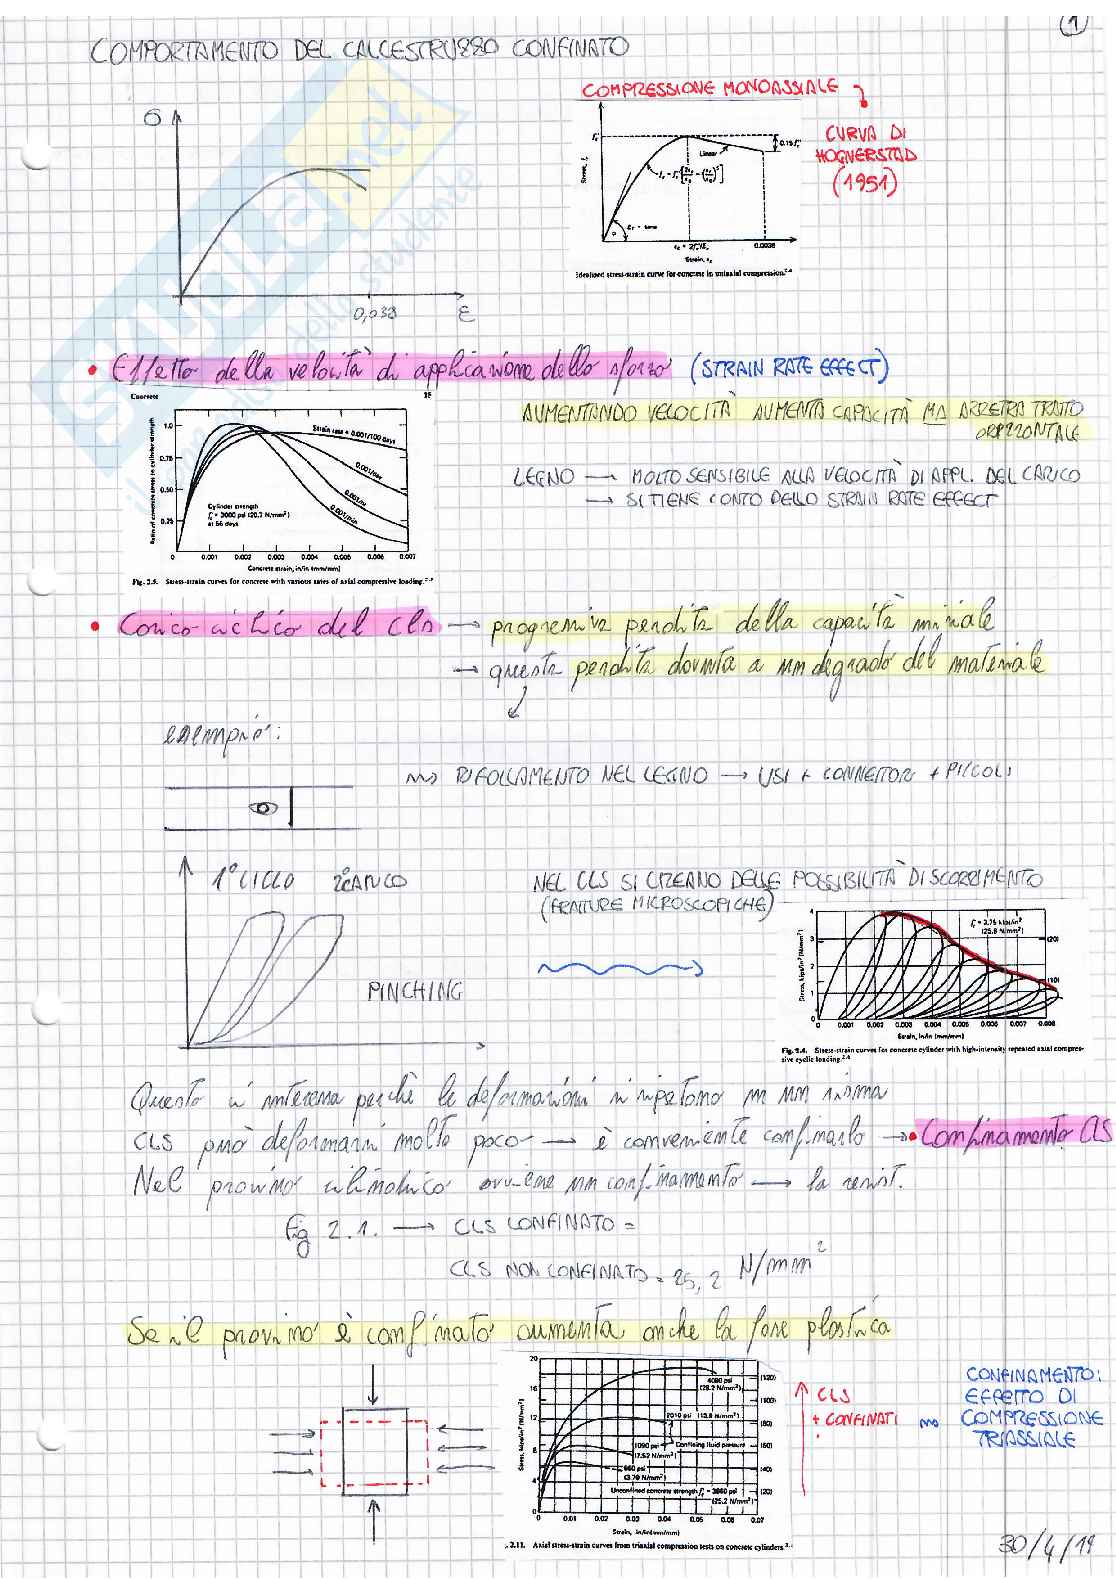 1
COMPORTAMENTO DEL CALCESTRUZZO CONFINATO
COMPRESSIONE MONOASSIALE
CURVA DI
HOGNERSTAD
(1951)
σ
0,038
ε
Stress, fc
0.15 f'c
Linear
0.0038
Strain, εc
Idealized stress-strain curve for concrete in uniaxial compression.
• Effetto della velocità di applicazione dello sforzo (STRAIN RATE EFFECT)
AUMENTANDO VELOCITÀ AUMENTA CAPACITÀ MA ARRETRA TRATTO
ORIZZONTALE
LEGNO → MOLTO SENSIBILE ALLA VELOCITÀ DI APPL. DEL CARICO
→ SI TIENE CONTO DELLO STRAIN RATE EFFECT
Concrete 15
Ratio of concrete stress to cylinder strength
1.0
0.75
0.50
0.25
Strain rate = 0.001/100 days
0.001/day
0.001/hr
0.001/min
Cylinder strength
f'c = 3000 psi (20.7 N/mm²)
at 56 days
0 0.001 0.002 0.003 0.004 0.005 0.006 0.007
Concrete strain, in/in (mm/mm)
Fig. 2.5. Stress-strain curves for concrete with various rates of axial compressive loading.
• Carico ciclico del cls → progressiva perdita della capacità iniziale
→ questa perdita dovuta a un degrado del materiale
esempio:
RIFOLLAMENTO NEL LEGNO → USI + CONNETTORI + PICCOLI
1° CICLO 2° CARICO
PINCHING
NEL CLS SI CREANO DELLE POSSIBILITÀ DI SCORRIMENTO
(FRATTURE MICROSCOPICHE)
Stress, kips/in² (N/mm²)
4
3
2
1
0
f'c = 3.75 kips/in²
(25.8 N/mm²)
(20)
(10)
0 0.001 0.002 0.003 0.004 0.005 0.006 0.007 0.008
Strain, in/in (mm/mm)
Fig. 2.4. Stress-strain curves for concrete cylinder with high-intensity repeated axial compres-
sive cyclic loading.
Questo ci interessa perchè le deformazioni si ripetono in un sisma
CLS può deformarsi molto poco → è conveniente confinarlo → • Confinamento CLS
Nel provino cilindrico avviene un confinamento → la resist.
Fig 2.1. → CLS CONFINATO =
CLS NON CONFINATO = 25,2 N/mm²
Se il provino è confinato aumenta anche la fase plastica
Stress, kips/in² (N/mm²)
20
16
12
8
4
0
4090 psi
(28.2 N/mm²)
2010 psi (13.9 N/mm²)
1090 psi
(7.52 N/mm²)
Confining fluid pressure
550 psi
(3.79 N/mm²)
Unconfined concrete strength f'c = 3660 psi
(25.2 N/mm²)
(120)
(100)
(80)
(60)
(40)
(20)
0 0.01 0.02 0.03 0.04 0.05 0.06 0.07
Strain, in/in (mm/mm)
. 2.11. Axial stress-strain curves from triaxial compression tests on concrete cylinders.
CLS
+ CONFINATI
CONFINAMENTO:
EFFETTO DI
COMPRESSIONE
TRIASSIALE
30/4/19